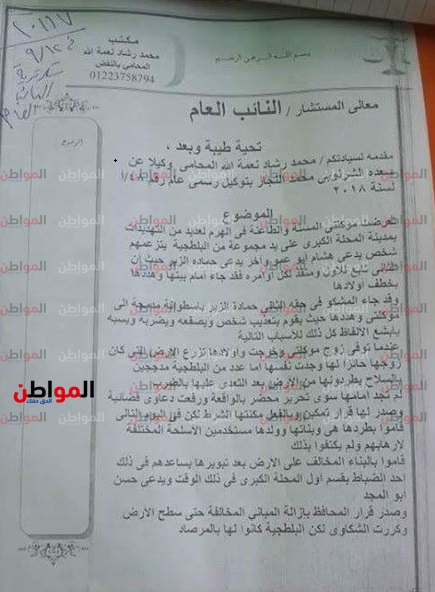 مكتب
محمد رشاد نعمة الله
المحامى بالنقض
01223758794
بسم الله الرحمن الرحيم
معالى المستشار / النائب العام
تحية طيبة وبعد ،
مقدمه لسيادتكم / محمد رشاد نعمة الله المحامى وكيلا عن
محمد النجار بتوكيل رسمى عام رقم
لسنة ٢٠١٨
الموضوع
تعرضت موكلتى المسنة والطاعنة فى الهرم لعديد من التهديدات
بمدينة المحلة الكبرى على يد مجموعة من البلطجية يتزعمهم
شخص يدعى هشام ابو عمر وآخر يدعى حماده الزير حيث إن
الثانى تابع للأول ومنفذ لكل أوامره فقد جاء امام بيتها وهددها
بخطف اولادها
وقد جاء المشكو فى حقه الثانى حمادة الزير باسطوانة مدمجة الى
موكلتى وهددها حيث يقوم بتعذيب شخص ويصفعه ويضربه ويسبه
بابشع الالفاظ كل ذلك للأسباب التالية
عندما توفى زوج موكلتى وخرجت واولادها تزرع الارض التى كان
زوجها حائزا لها وجدت نفسها اما عدد من البلطجية مدججين
بالسلاح يطردونها من الارض بعد التعدى عليها بالضرب
لم تجد امامها سوى تحرير محضر بالواقعة ورفعت دعاوى قضائية
وصدر لها قرار تمكين وبالفعل مكنتها الشرط لكن فى اليوم التالى
قاموا بطردها هى وبناتها وولدها مستخدمين الاسلحة المختلفة
لارهابهم ولم يكتفوا بذلك
قاموا بالبناء المخالف على الارض بعد تبويرها يساعدهم فى ذلك
احد الضباط بقسم اول المحلة الكبرى فى ذلك الوقت ويدعى حسن
ابو المجد
وصدر قرار المحافظ بازالة المبانى المخالفة حتى سطح الارض
وكررت الشكاوى لكن البلطجية كانوا لها بالمرصاد
المواطن